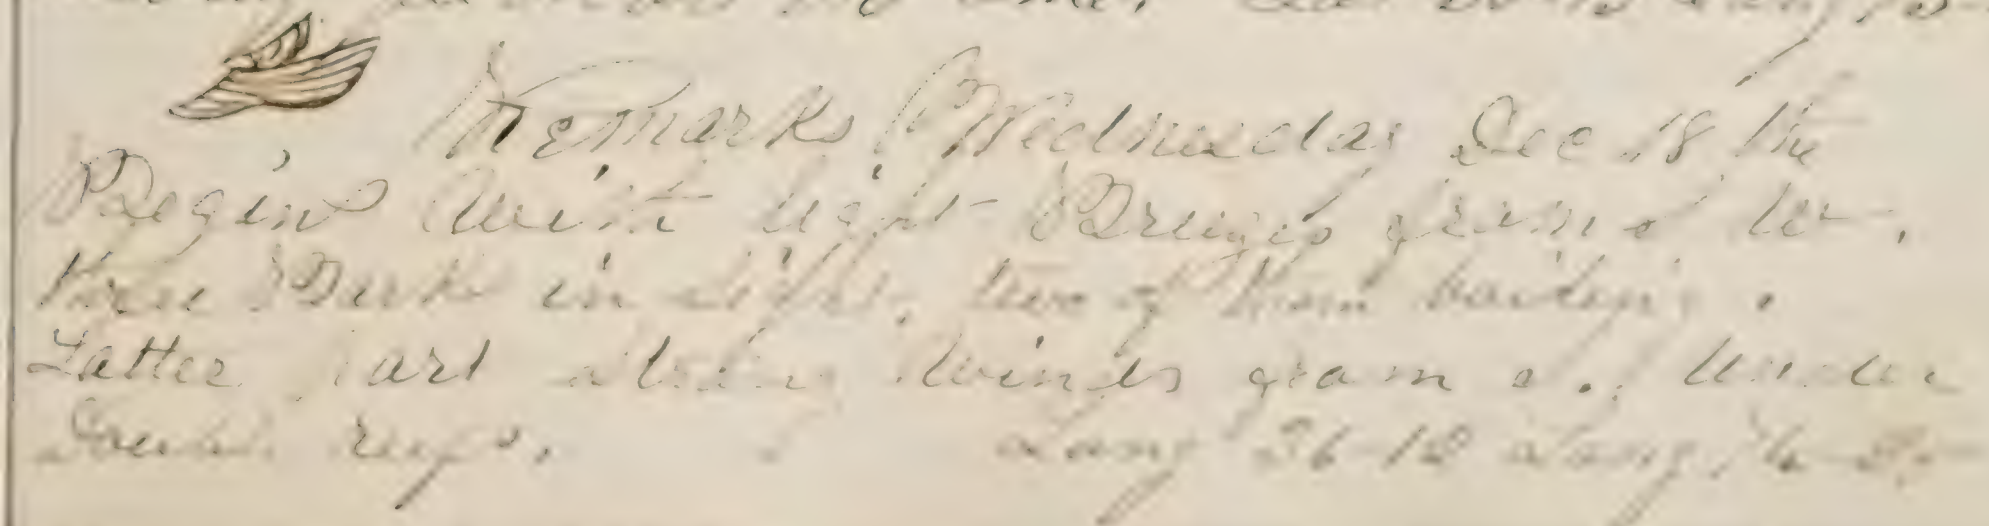 Remarks Wednesday Dec 18 the
Begins With light Breezes from S W.
three Bark in sight. two of them boiling.
Latter part strong Winds from S. Under
Double reefs. Lang 36-12 Long